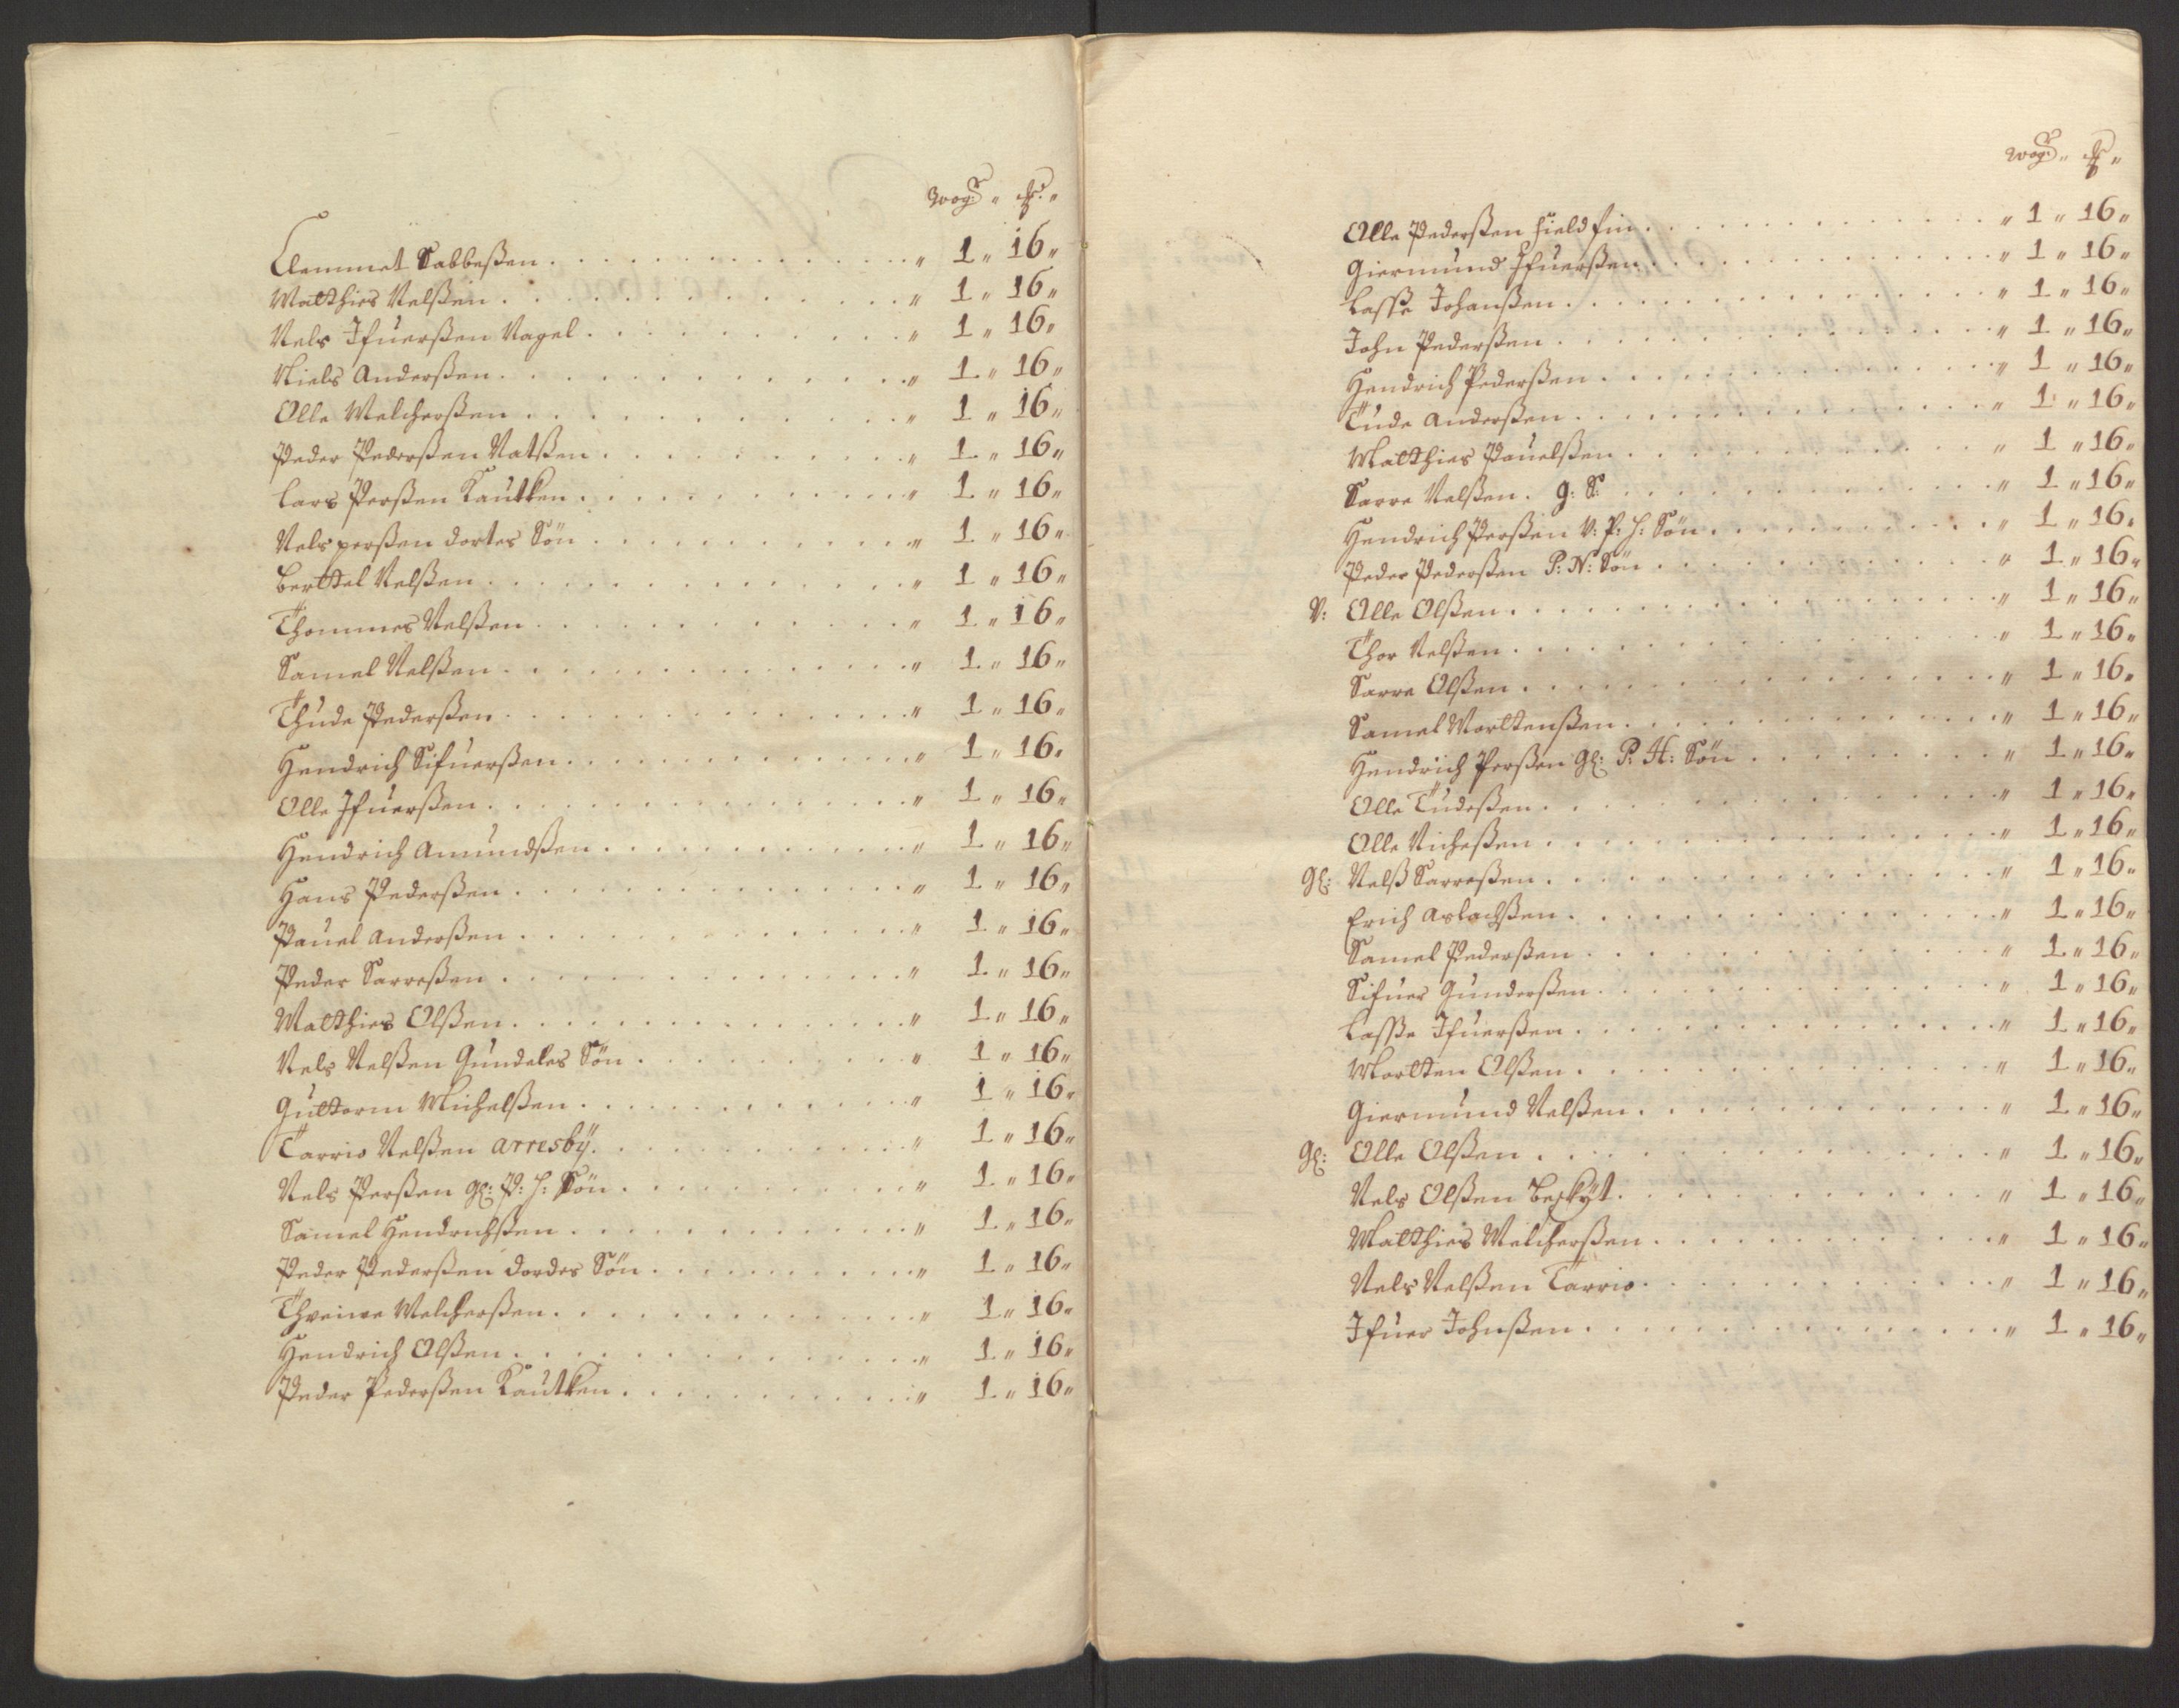 Wog: "
Clemmet Sabbeßen . . . " 1 " 16 "
Matthies Nelßen . . . " 1 " 16 "
Nels Ifuerßen Nagel . . . " 1 " 16 "
Niels Anderßen . . . " 1 " 16 "
Olle Melcherßen . . . " 1 " 16 "
Peder Pederßen Natßen . . . " 1 " 16 "
Lars Perßen Kautken . . . " 1 " 16 "
Nels perßen dortes Sön . . . " 1 " 16 "
Berttel Nelßen . . . " 1 " 16 "
Thommes Nelßen . . . " 1 " 16 "
Samel Nelßen . . . " 1 " 16 "
Thude Pederßen . . . " 1 " 16 "
Hendrich Sifuerßen . . . " 1 " 16 "
Olle Ifuerßen . . . " 1 " 16 "
Hendrich Amundßen . . . " 1 " 16 "
Hans Pederßen . . . " 1 " 16 "
Pauel Anderßen . . . " 1 " 16 "
Peder Sarreßen . . . " 1 " 16 "
Matthies Olßen . . . " 1 " 16 "
Nels Nelßen Gundeles Sön . . . " 1 " 16 "
Guttorm Michelßen . . . " 1 " 16 "
Tarrio Nelßen arresbÿ . . . " 1 " 16 "
Nels Perßen gl: P: H: Sön . . . " 1 " 16 "
Samel Hendrichßen . . . " 1 " 16 "
Peder Pederßen dordes Sön . . . " 1 " 16 "
Melcherßen . . . " 1 " 16 "
Hendrich Olßen . . . " 1 " 16 "
Peder Pederßen Kautken . . . " 1 " 16 "
Wog: "
Olle Pederßen field fin . . . " 1 " 16 "
Giermund Ifuerßen . . . " 1 " 16 "
Lasse Johanßen . . . " 1 " 16 "
John Pederßen . . . " 1 " 16 "
Hendrich Pederßen . . . " 1 " 16 "
Tude Anderßen . . . " 1 " 16 "
Matthies Pauelßen . . . " 1 " 16 "
Sarre Nelßen . g: S: . . . " 1 " 16 "
Hendrich Perßen V: P: H: Sön . . . " 1 " 16 "
Peder Pederßen P: N: Sön . . . " 1 " 16 "
V: Olle Olßen . . . " 1 " 16 "
Thor Nelßen . . . " 1 " 16 "
Sarre Olßen . . . " 1 " 16 "
Samel Morttenßen . . . " 1 " 16 "
Hendrich Perßen gl: P: H: Sön . . . " 1 " 16 "
Olle Tudeßen . . . " 1 " 16 "
Olle Nicheßen . . . " 1 " 16 "
gl: Nelß Sarreßen . . . " 1 " 16 "
Erich Aslachßen . . . " 1 " 16 "
Samel Pederßen . . . " 1 " 16 "
Sifuer Gunderßen . . . " 1 " 16 "
Lasse Ifuerßen . . . " 1 " 16 "
Mortten Olßen . . . " 1 " 16 "
Giermund Nelßen . . . " 1 " 16 "
gl: Olle Olßen . . . " 1 " 16 "
Nels Olßen Beskÿt . . . " 1 " 16 "
Matthies Melcherßen . . . " 1 " 16 "
Nels Nelßen Tarrio . . . " 1 " 16 "
Ifuer Johnßen . . . " 1 " 16 "